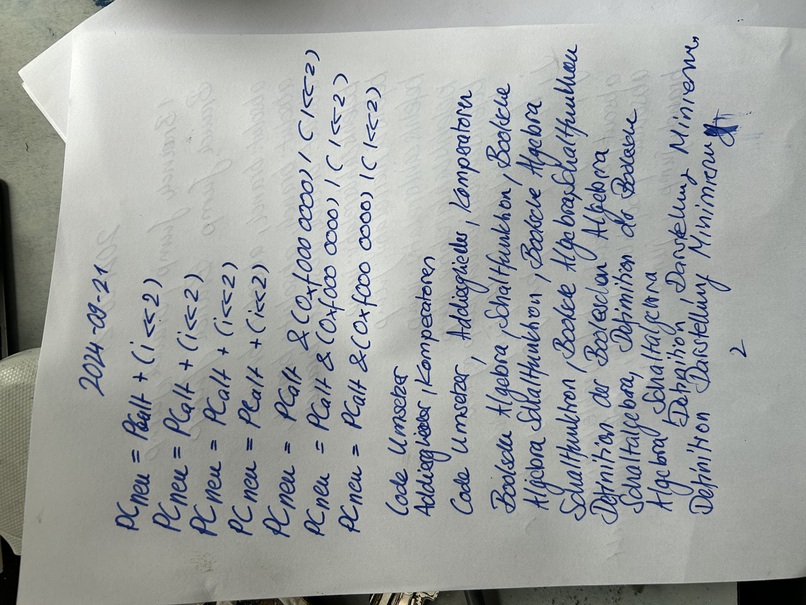 2024-09-21
PCneu = PCalt + (i<<2)
PCneu = PCalt + (i<<2)
PCneu = PCalt + (i<<2)
PCneu = PCalt + (i<<2)
PCneu = PCalt &(0xf000 0000) | (I<<2)
PCneu = PCalt &(0xf000 0000) | (I<<2)
PCneu = PCalt &(0xf000 0000) | (I<<2)
Code Umsetzer
Addierglieder, Komperatoren
Code Umsetzer, Addierglieder, Komperatoren
Boolsche Algebra, Schaltfunktion, Boolsche
Algebra Schaltfunktion, Boolsche Algebra
Schaltfunktion, Boolsche Algebra, Schaltfunktion
Definition der Booleschen Algebra
Schaltalgebra, Definition der Boolesche
Algebra, Schaltalgebra
Definition, Darstellung
Definition Darstellung Minimierung
2